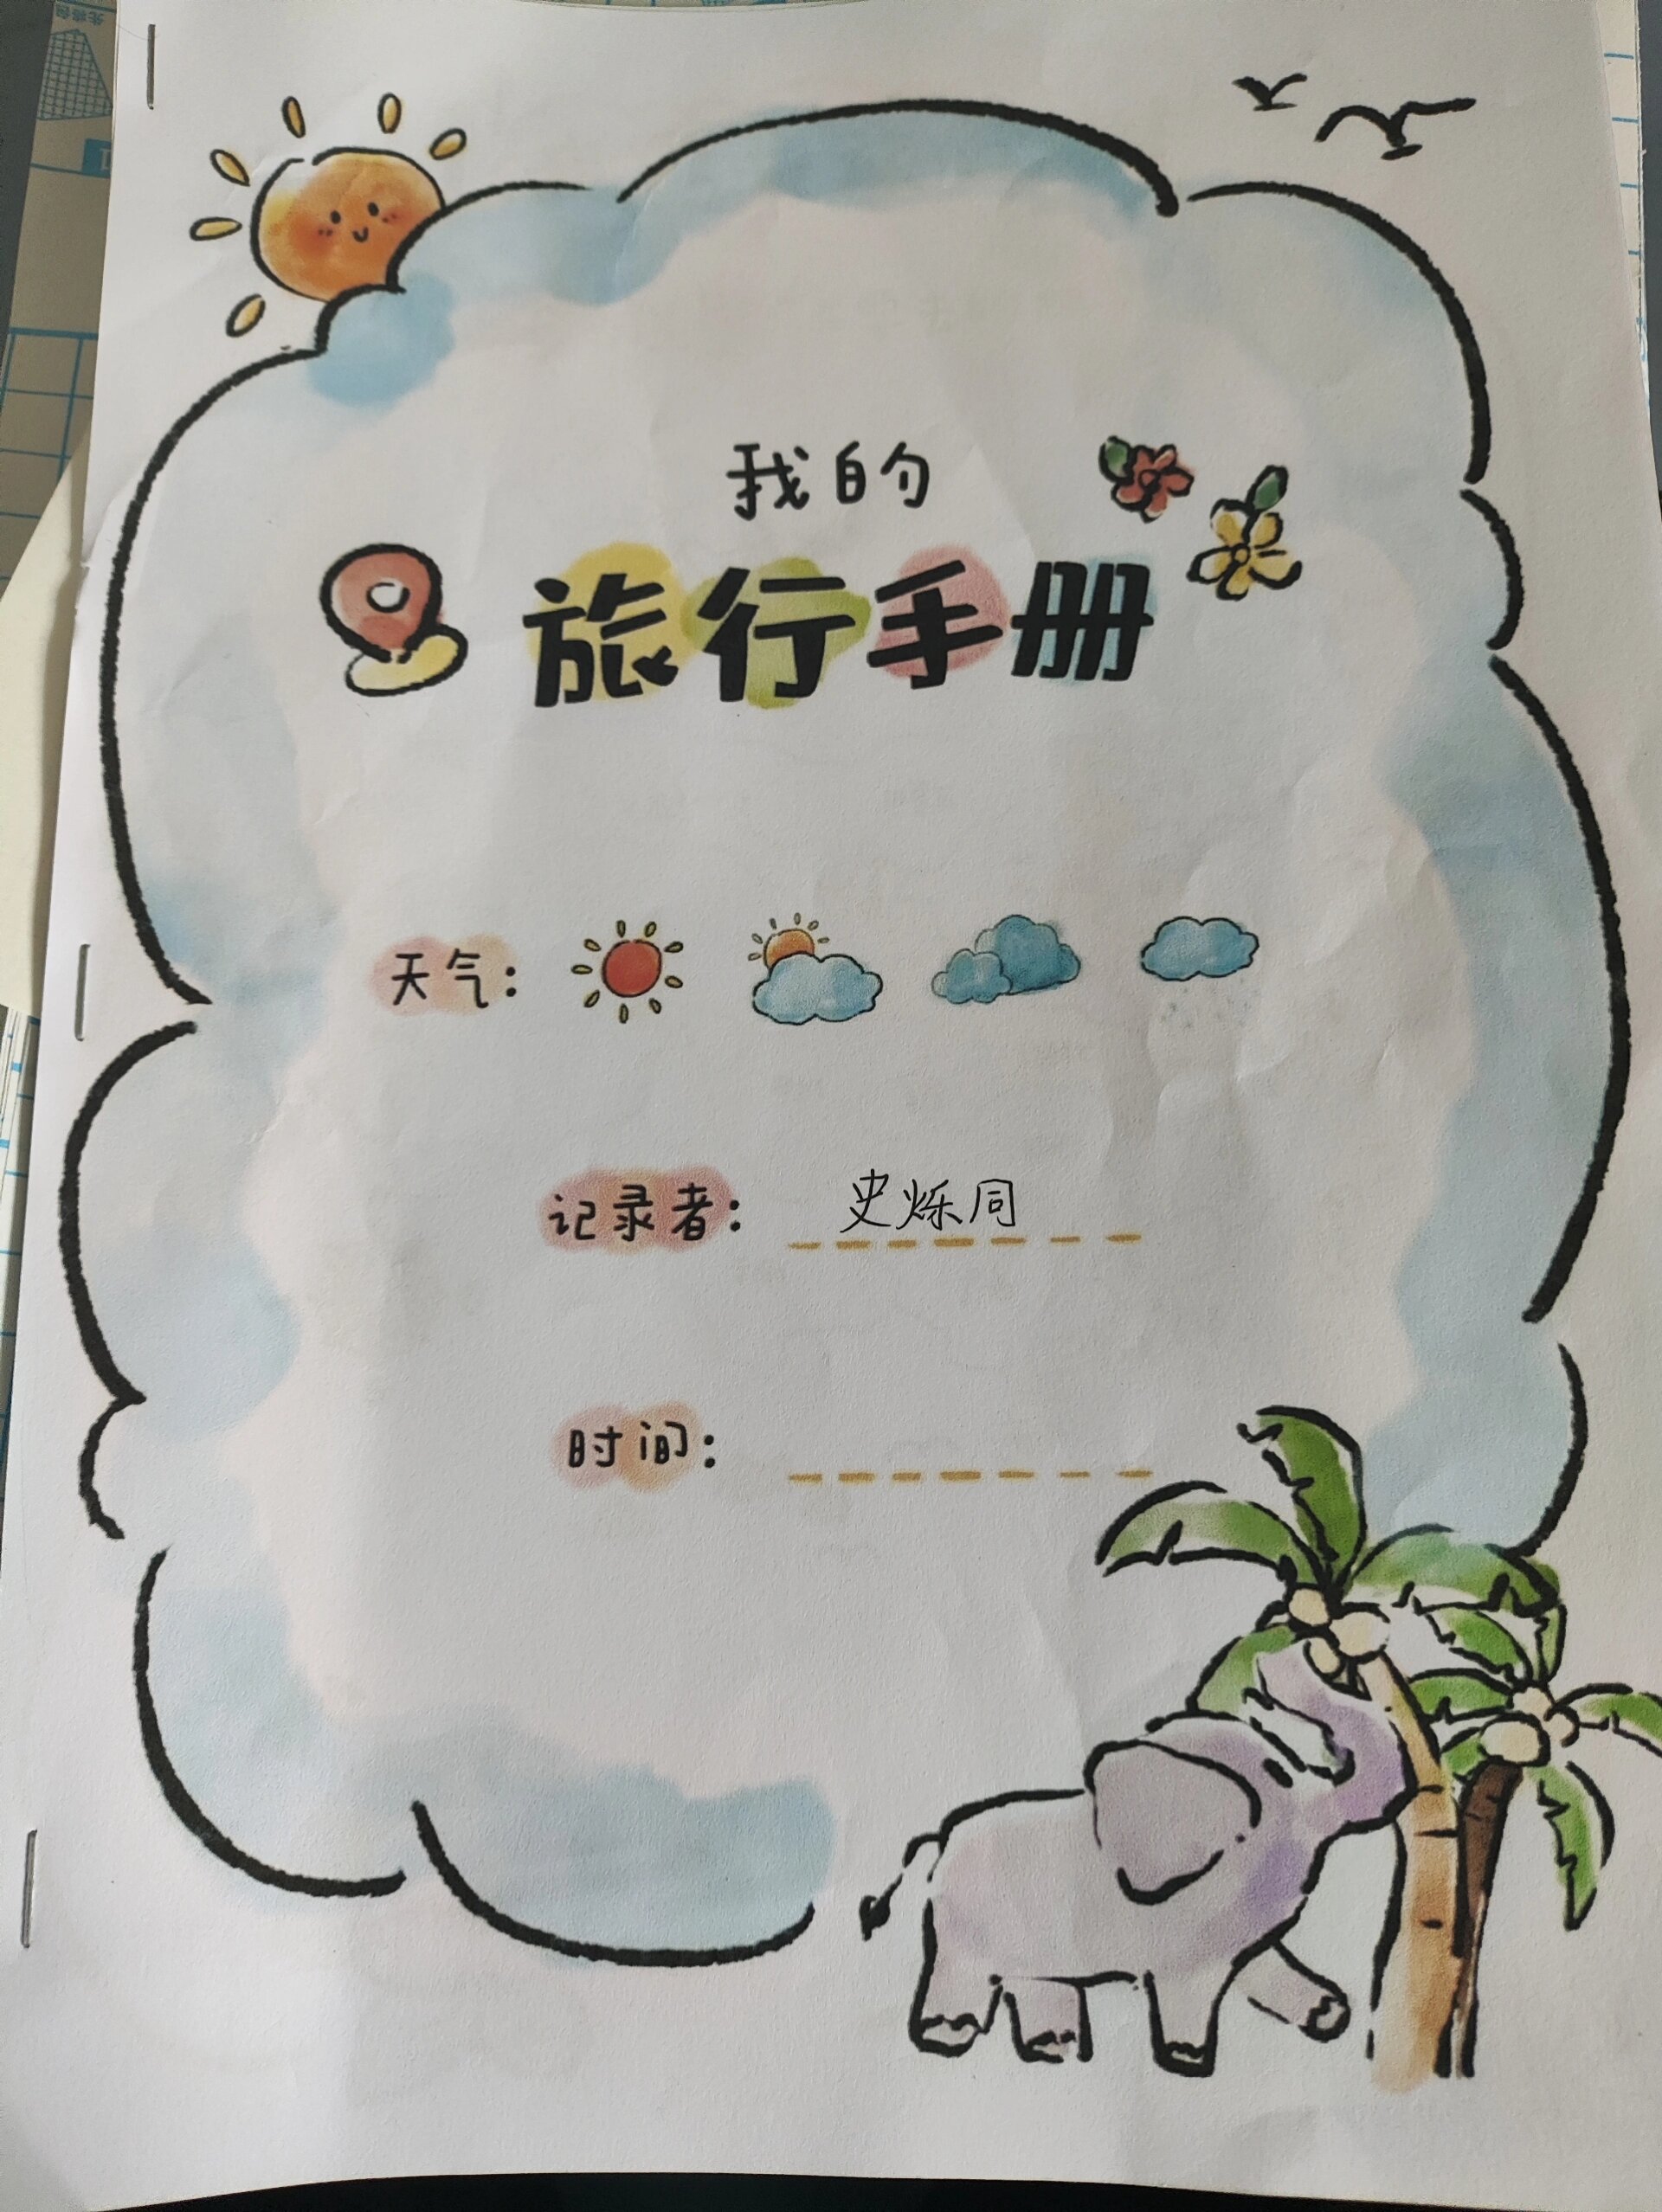 我的
旅行手册
天气：
记录者： 史烁同
时间：